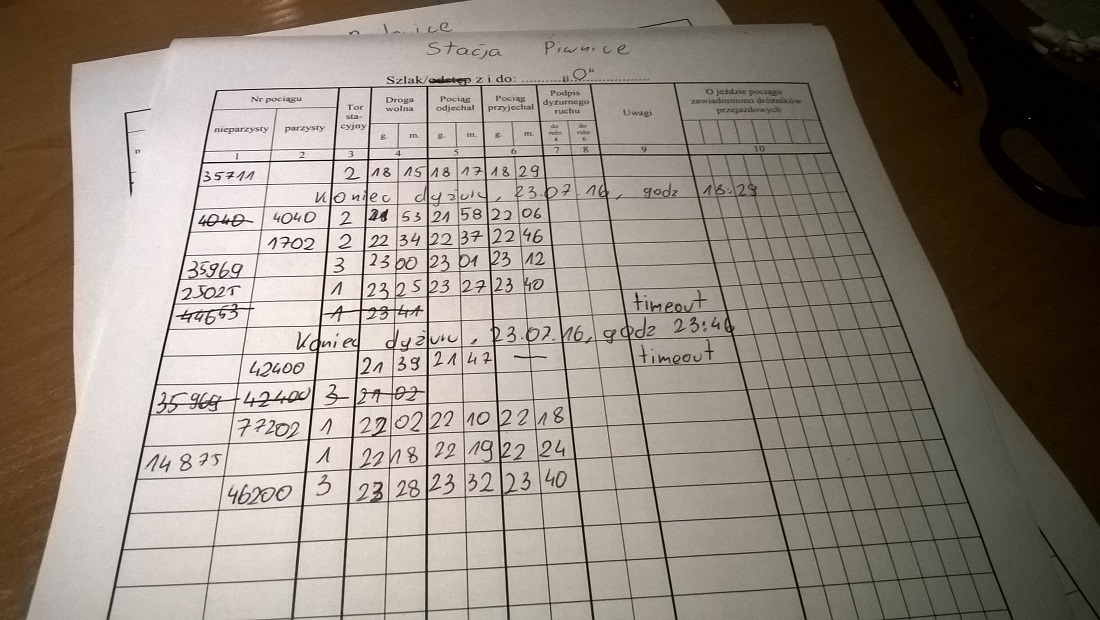 Stacja Piwnice
Szlak/odstęp z i do: ........... „O" ...........
Nr pociągu Tor stacyjny Droga wolna Pociąg odjechał Pociąg przyjechał Podpis dyżurnego ruchu Uwagi O jeździe pociągu zawiadomiono dróżników przejazdowych
nieparzysty parzysty g. m. g. m. g. m. do rubr. 4 do rubr. 6
1 2 3 4 5 6 7 8 9 10
35711 2 18 15 18 17 18 29
Koniec dyżuru, 23.07.16, godz 18:29
4040 4040 2 21 53 21 58 22 06
1702 2 22 34 22 37 22 46
35969 3 23 00 23 01 23 12
25025 1 23 25 23 27 23 40
44653 1 23 41 timeout
Koniec dyżuru, 23.07.16, godz 23:46
42400 21 39 21 47 — timeout
35969 42400 3 21 02
77202 1 22 02 22 10 22 18
14875 1 22 18 22 19 22 24
46200 3 23 28 23 32 23 40